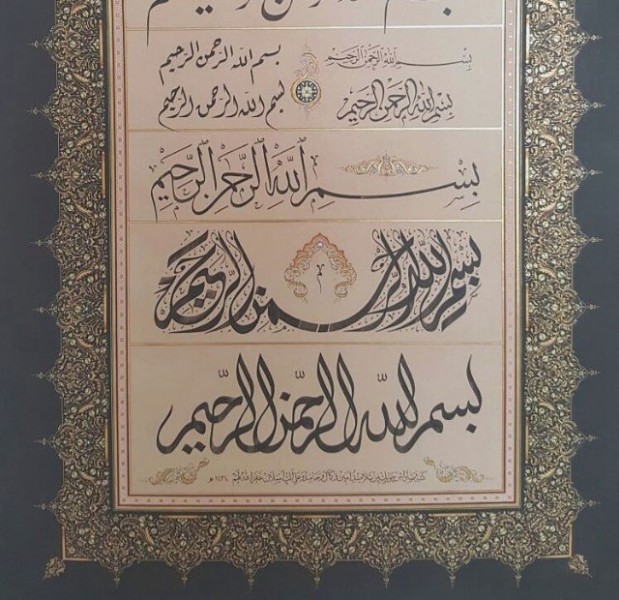 بسم الله الرحمن الرحيم
بِسْمِ اللّٰهِ الرَّحْمٰنِ الرَّحِيمِ
بسم الله الرحمن الرحيم
بِسْمِ اللّٰهِ الرَّحْمٰنِ الرَّحِيمِ
بسم الله الرحمن الرحيم
بِسْمِ اللّٰهِ الرَّحْمٰنِ الرَّحِيمِ
بسم الله الرحمن الرحيم
بسم اللّه الرحمن الرحيم